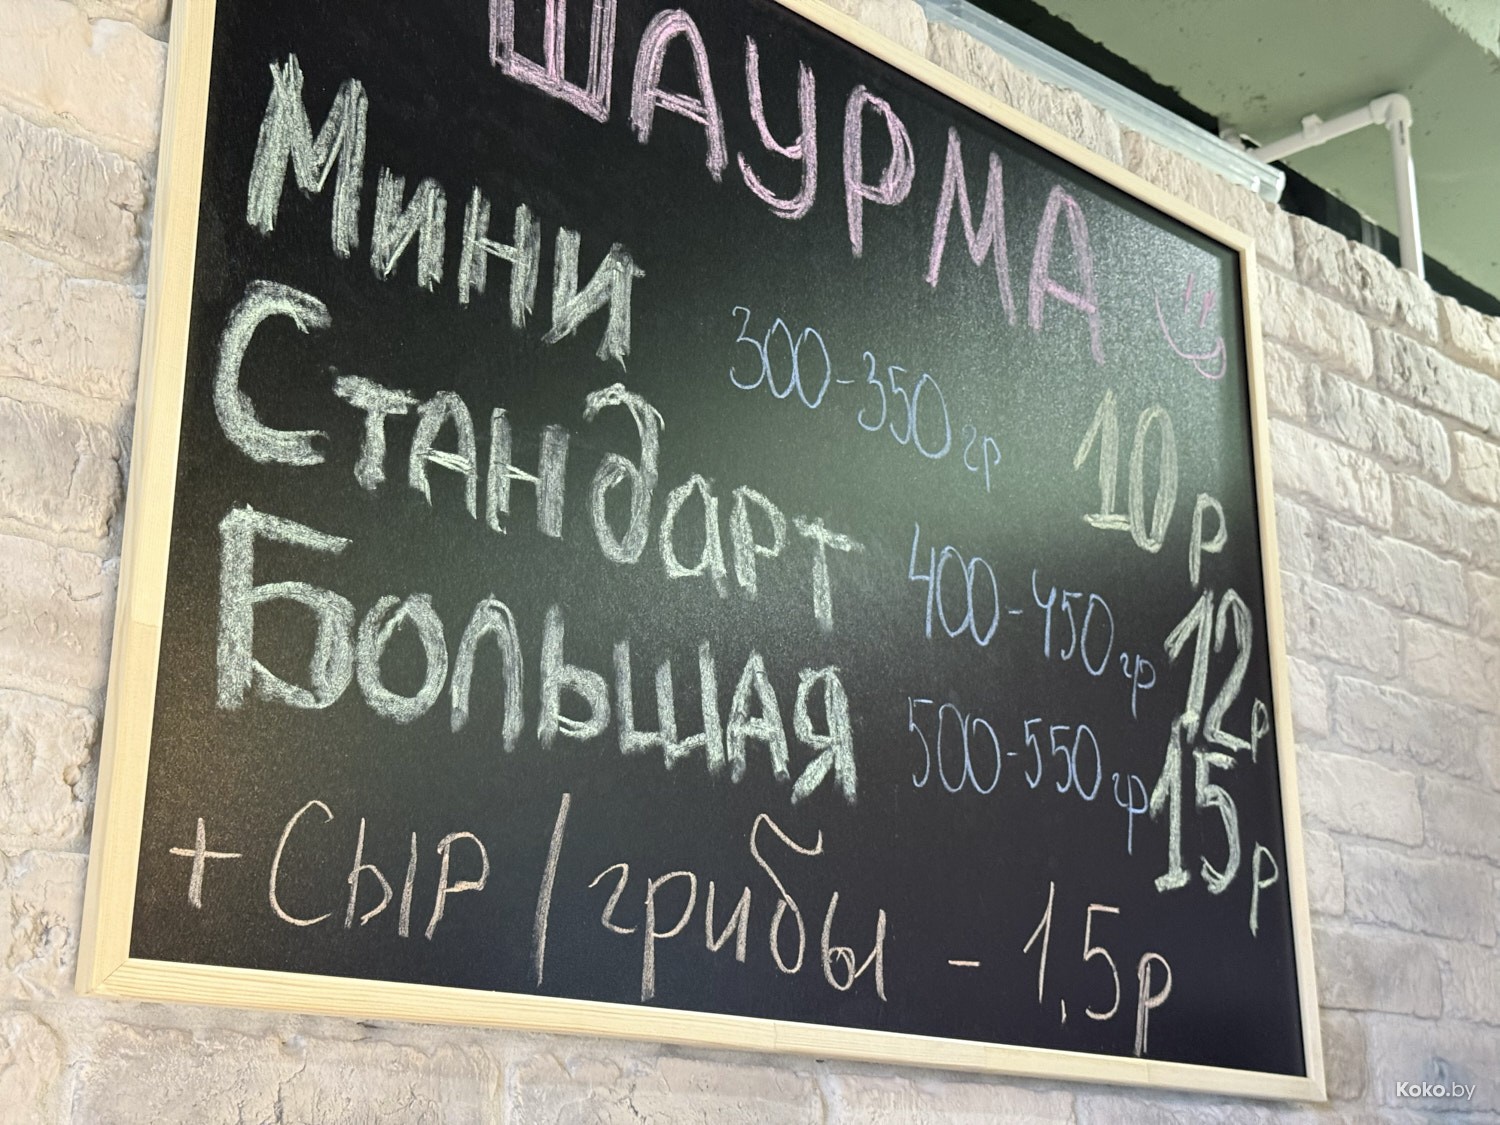 ШАУРМА
Мини 300-350 гр 10 р
Стандарт 400-450 гр 12 р
Большая 500-550 гр 15 р
+ Сыр / грибы - 1,5 р
Koko.by